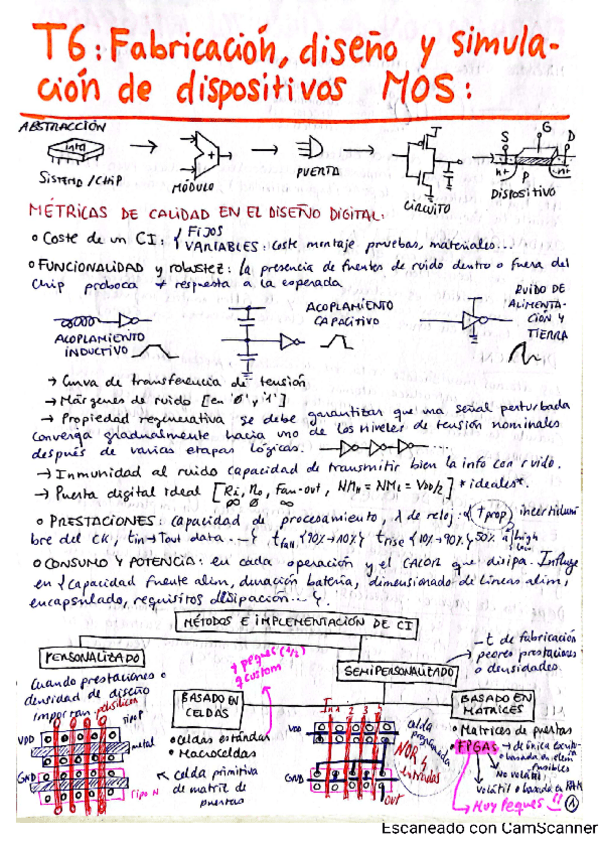 T6: Fabricación, diseño y simula-
ción de dispositivos MOS:
ABSTRACCIÓN
SISTEMA / CHIP
MÓDULO
PUERTA
CIRCUITO
S G D
n+ P n+
DISPOSITIVO
MÉTRICAS DE CALIDAD EN EL DISEÑO DIGITAL:
• Coste de un CI: { FIJOS
VARIABLES: coste montaje pruebas, materiales...
• FUNCIONALIDAD y robustez: la presencia de fuentes de ruido dentro o fuera del
chip proboca ≠ respuesta a la esperada
ACOPLAMIENTO
INDUCTIVO
ACOPLAMIENTO
CAPACITIVO
RUIDO DE
ALIMENTA-
CIÓN Y
TIERRA
→ Curva de transferencia de tensión
→ Márgenes de ruido [en '0' y '1']
→ Propiedad regenerativa se debe garantitzar que una señal perturbada
converga gradualmente hacia uno de los niveles de tensión nominales
después de varias etapas lógicas.
→ Inmunidad al ruido capacidad de transmitir bien la info con ruido.
→ Puerta digital ideal [Ri, Ro, Fan-out, NMH = NML = VDD/2] *ideales*.
∞ 0 ∞
• PRESTACIONES: capacidad de procesamiento, de reloj: tprop incertidum
bre del CK, tin→tout data... { tfall {90%→10%} trise {10%→90%} 50% high low
• CONSUMO Y POTENCIA: en cada operación y el CALOR que disipa. Influye
en {capacidad fuente alim, duración batería, dimensionado de líneas alim,
encapsulado, requisitos disipación...}.
MÉTODOS E IMPLEMENTACIÓN DE CI
PERSONALIZADO
SEMIPERSONALIZADO
-t de fabricación
peores prestaciones
o densidades.
Cuando prestaciones o
densidad de diseño
importan.
polisilicio
Tipo P
VDD
metal
GND
Tipo N
BASADO EN
CELDAS
• Celdas estándar
• Macroceldas
celda primitiva
de matriz de
puertas
In 1 2 3
VDD
GND
out
celda
programada
NOR 4
entradas
BASADO EN
MATRICES
• Matrices de puertas
• FPGAS
No volátil:
Muy Peques !!
1
Escaneado con CamScanner